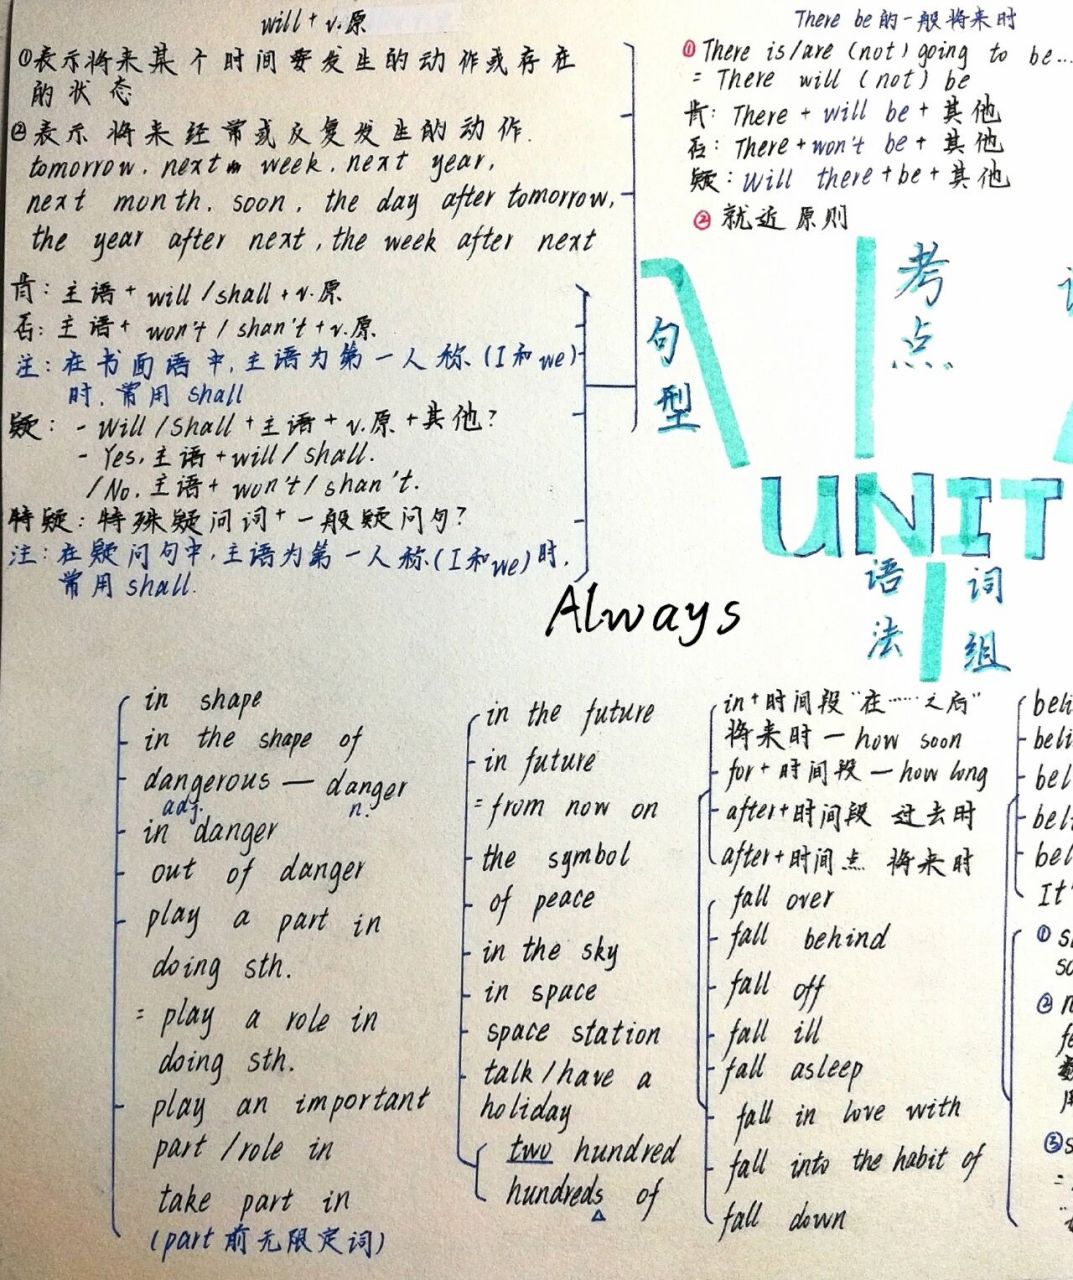 will + v.原
①表示将来某个时间要发生的动作或存在
的状态
②表示将来经常或反复发生的动作.
tomorrow, next week, next year,
next month, soon, the day after tomorrow,
the year after next, the week after next
肯: 主语 + will / shall + v.原
否: 主语 + won't / shan't + v.原
注: 在书面语中, 主语为第一人称 (I和we)
时, 常用 shall
疑: - Will / Shall + 主语 + v.原 + 其他?
- Yes, 主语 + will / shall.
/ No, 主语 + won't / shan't.
特疑: 特殊疑问词 + 一般疑问句?
注: 在疑问句中, 主语为第一人称 (I和we) 时,
常用 shall.
There be的一般将来时
① There is/are (not) going to be...
= There will (not) be
肯: There + will be + 其他
否: There + won't be + 其他
疑: Will there + be + 其他
② 就近原则
句型
考点
UNIT
语法
词组
Always
in shape
in the shape of
dangerous — danger
adj. n.
in danger
out of danger
play a part in
doing sth.
= play a role in
doing sth.
play an important
part / role in
take part in
(part 前无限定词)
in the future
in future
= from now on
the symbol
of peace
in the sky
in space
space station
talk / have a
holiday
two hundred
hundreds of
in + 时间段 "在……之后"
将来时 — how soon
for + 时间段 — how long
after + 时间段 过去时
after + 时间点 将来时
fall over
fall behind
fall off
fall ill
fall asleep
fall in love with
fall into the habit of
fall down
beli
beli
bel
beli
bel
It'
①
②
③